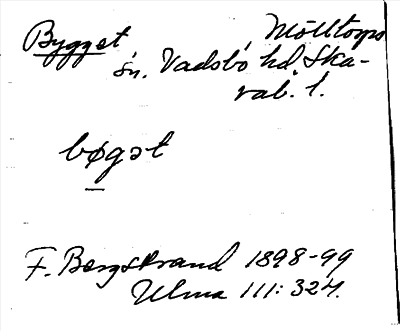 Bygget Mölltorps
sn. Vadsbo hd Ska-
rab. l.
bøgət
F. Bergstrand 1898-99
Ulma 111: 324.